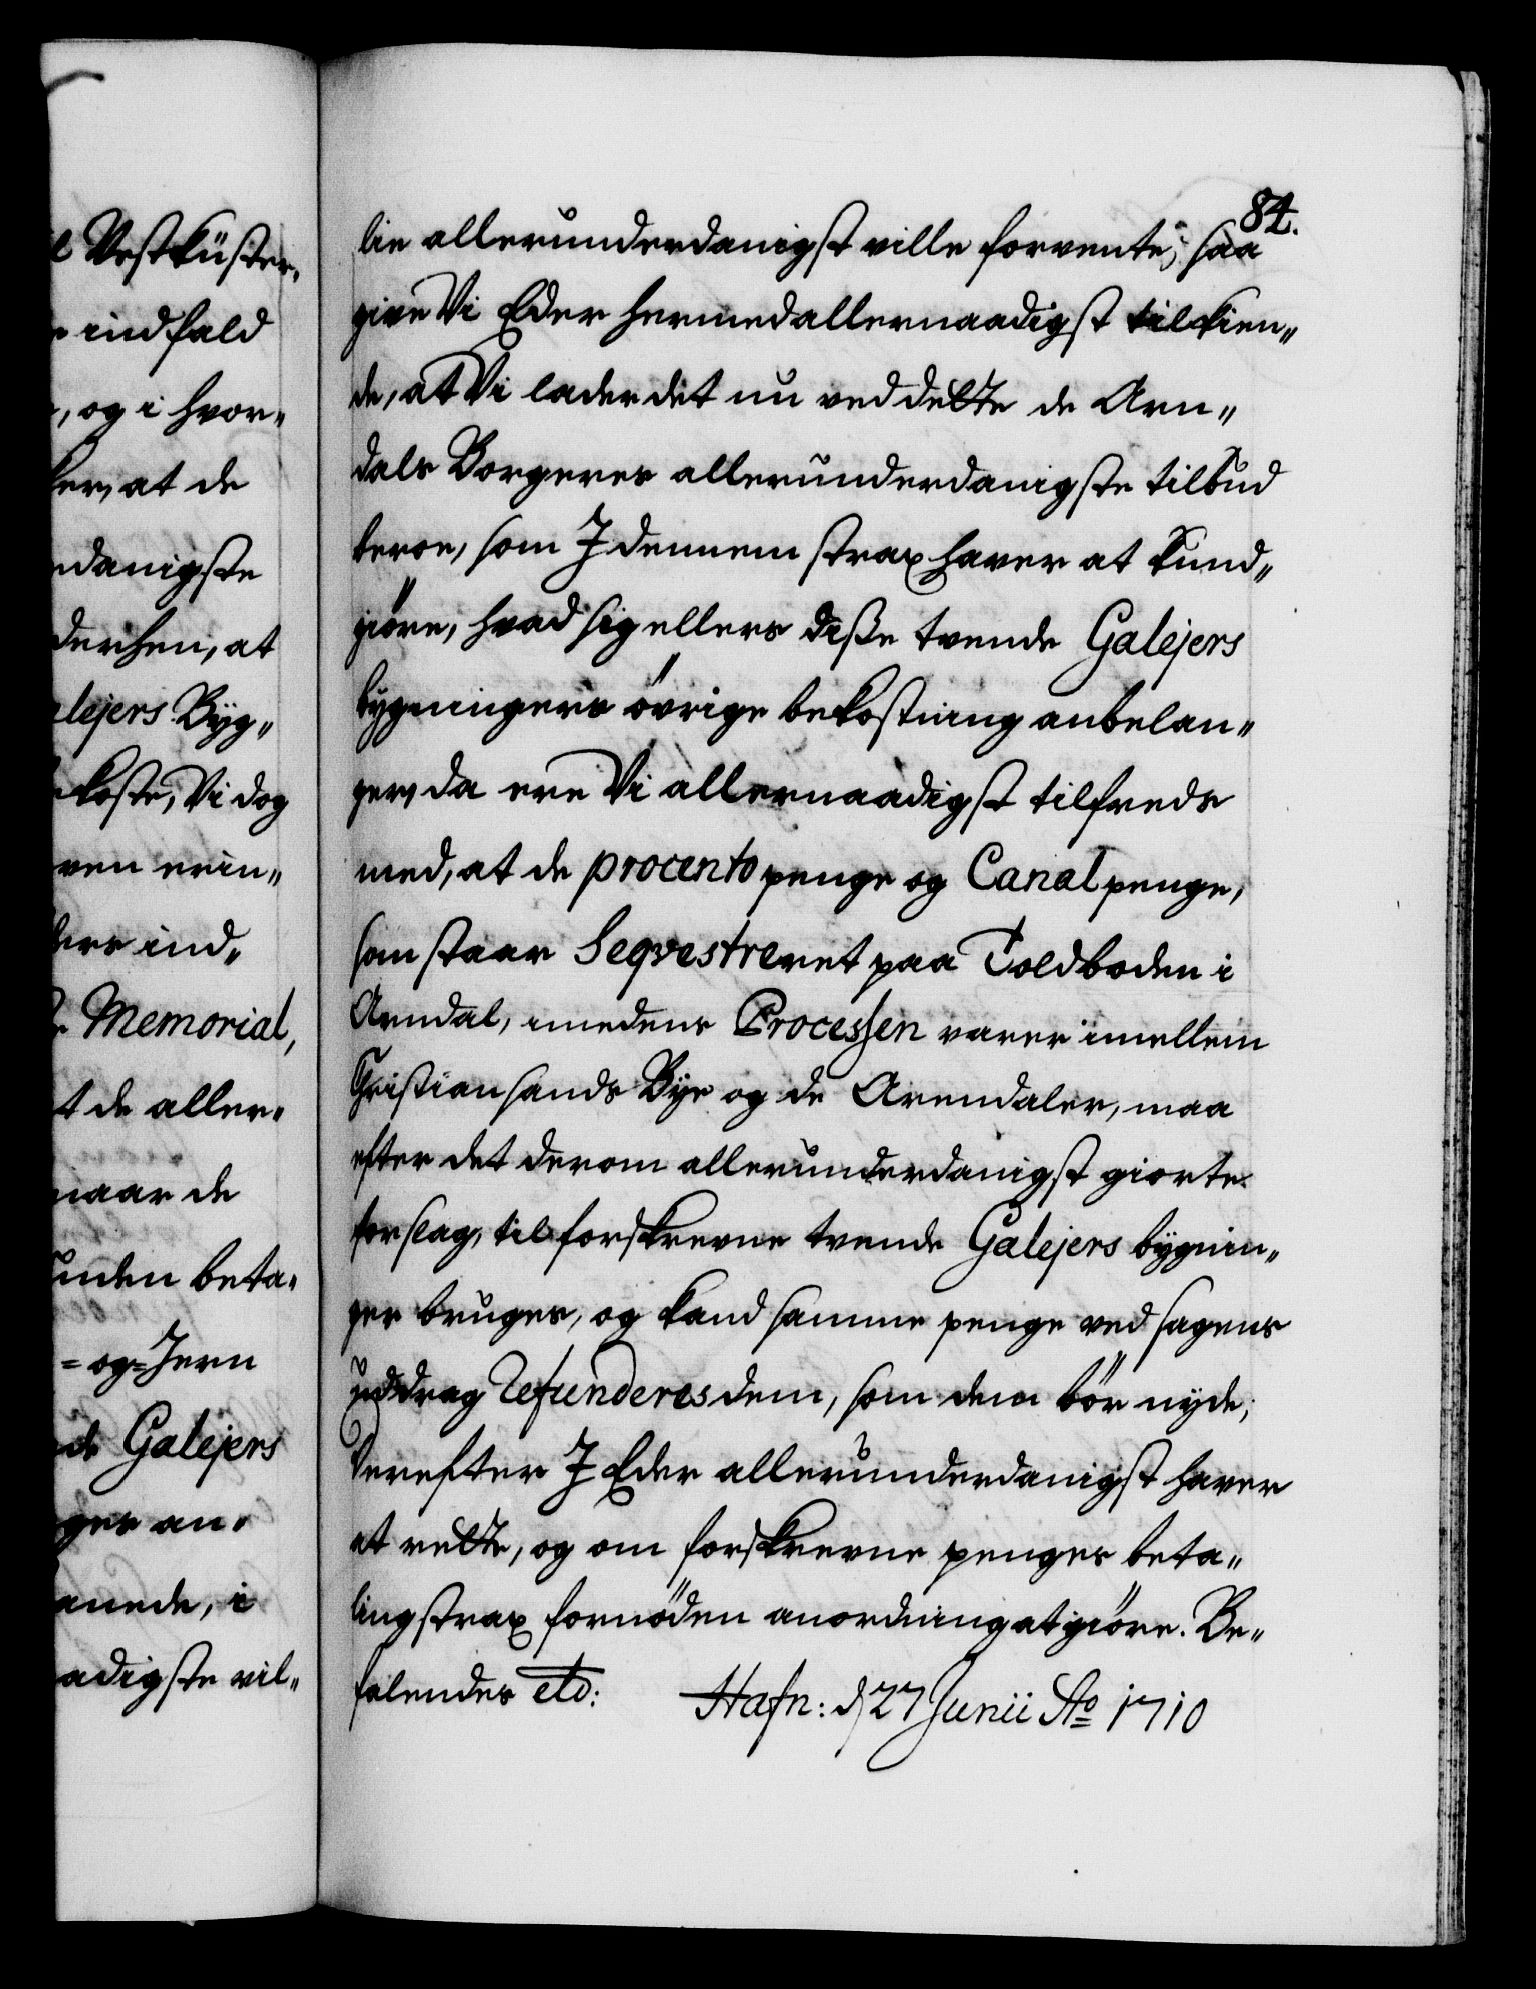 84.
lie allerunderdanigst ville forvente; saa
give Vi Eder hermed allernaadigst tilkien„
de, at Vi lader det nu ved dette de Arn„
dals Borgeres allerunderdanigste tilbud
beroe, som I dennem strax haver at kund„
giöre, hvad sig ellers diße tvende Galejers
bygningers övrige bekostning anbelan„
ger, da ere Vi allernaadigst tilfreds
med, at de procento penge og Canal penge,
som staar Seqvestreret paa Toldboden i
Arndal, imedens Processen varer imellem
Christiansands Bye og de Arendaler, maa
efter det derom allerunderdanigst giorte
forslag, til forskrevne tvende Galejers bygnin„
ger bruges, og kand samme penge ved sagens
uddrag Refunderes dem, som dem bör nyde;
Derefter I Eder allerunderdanigst haver
at rette, og om forskrevne penges beta„
ling strax fornöden anordning at giöre. Be„
falendes etc: Hafn: d 27 Junii Ao 1710
Vestküster„
indfald
, og i hvor„
at de
danigste
derhen, at
lejers Byg„
koste, Vi dog
ven erin„
ind„
Memorial,
t de aller„
naar de
nden beta„
= og Jern
de Galejers
ger an„
anede, i
adigste vil„